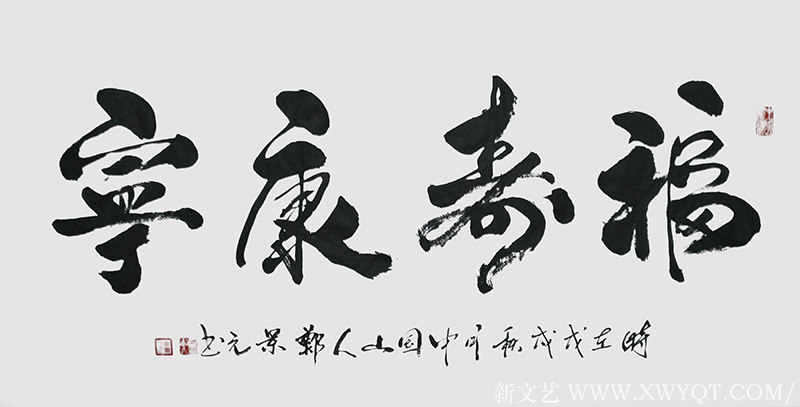 福寿康寧
時在戊戌秋月中国山人鄭景元书
新文艺 WWW.XWYQT.COM/